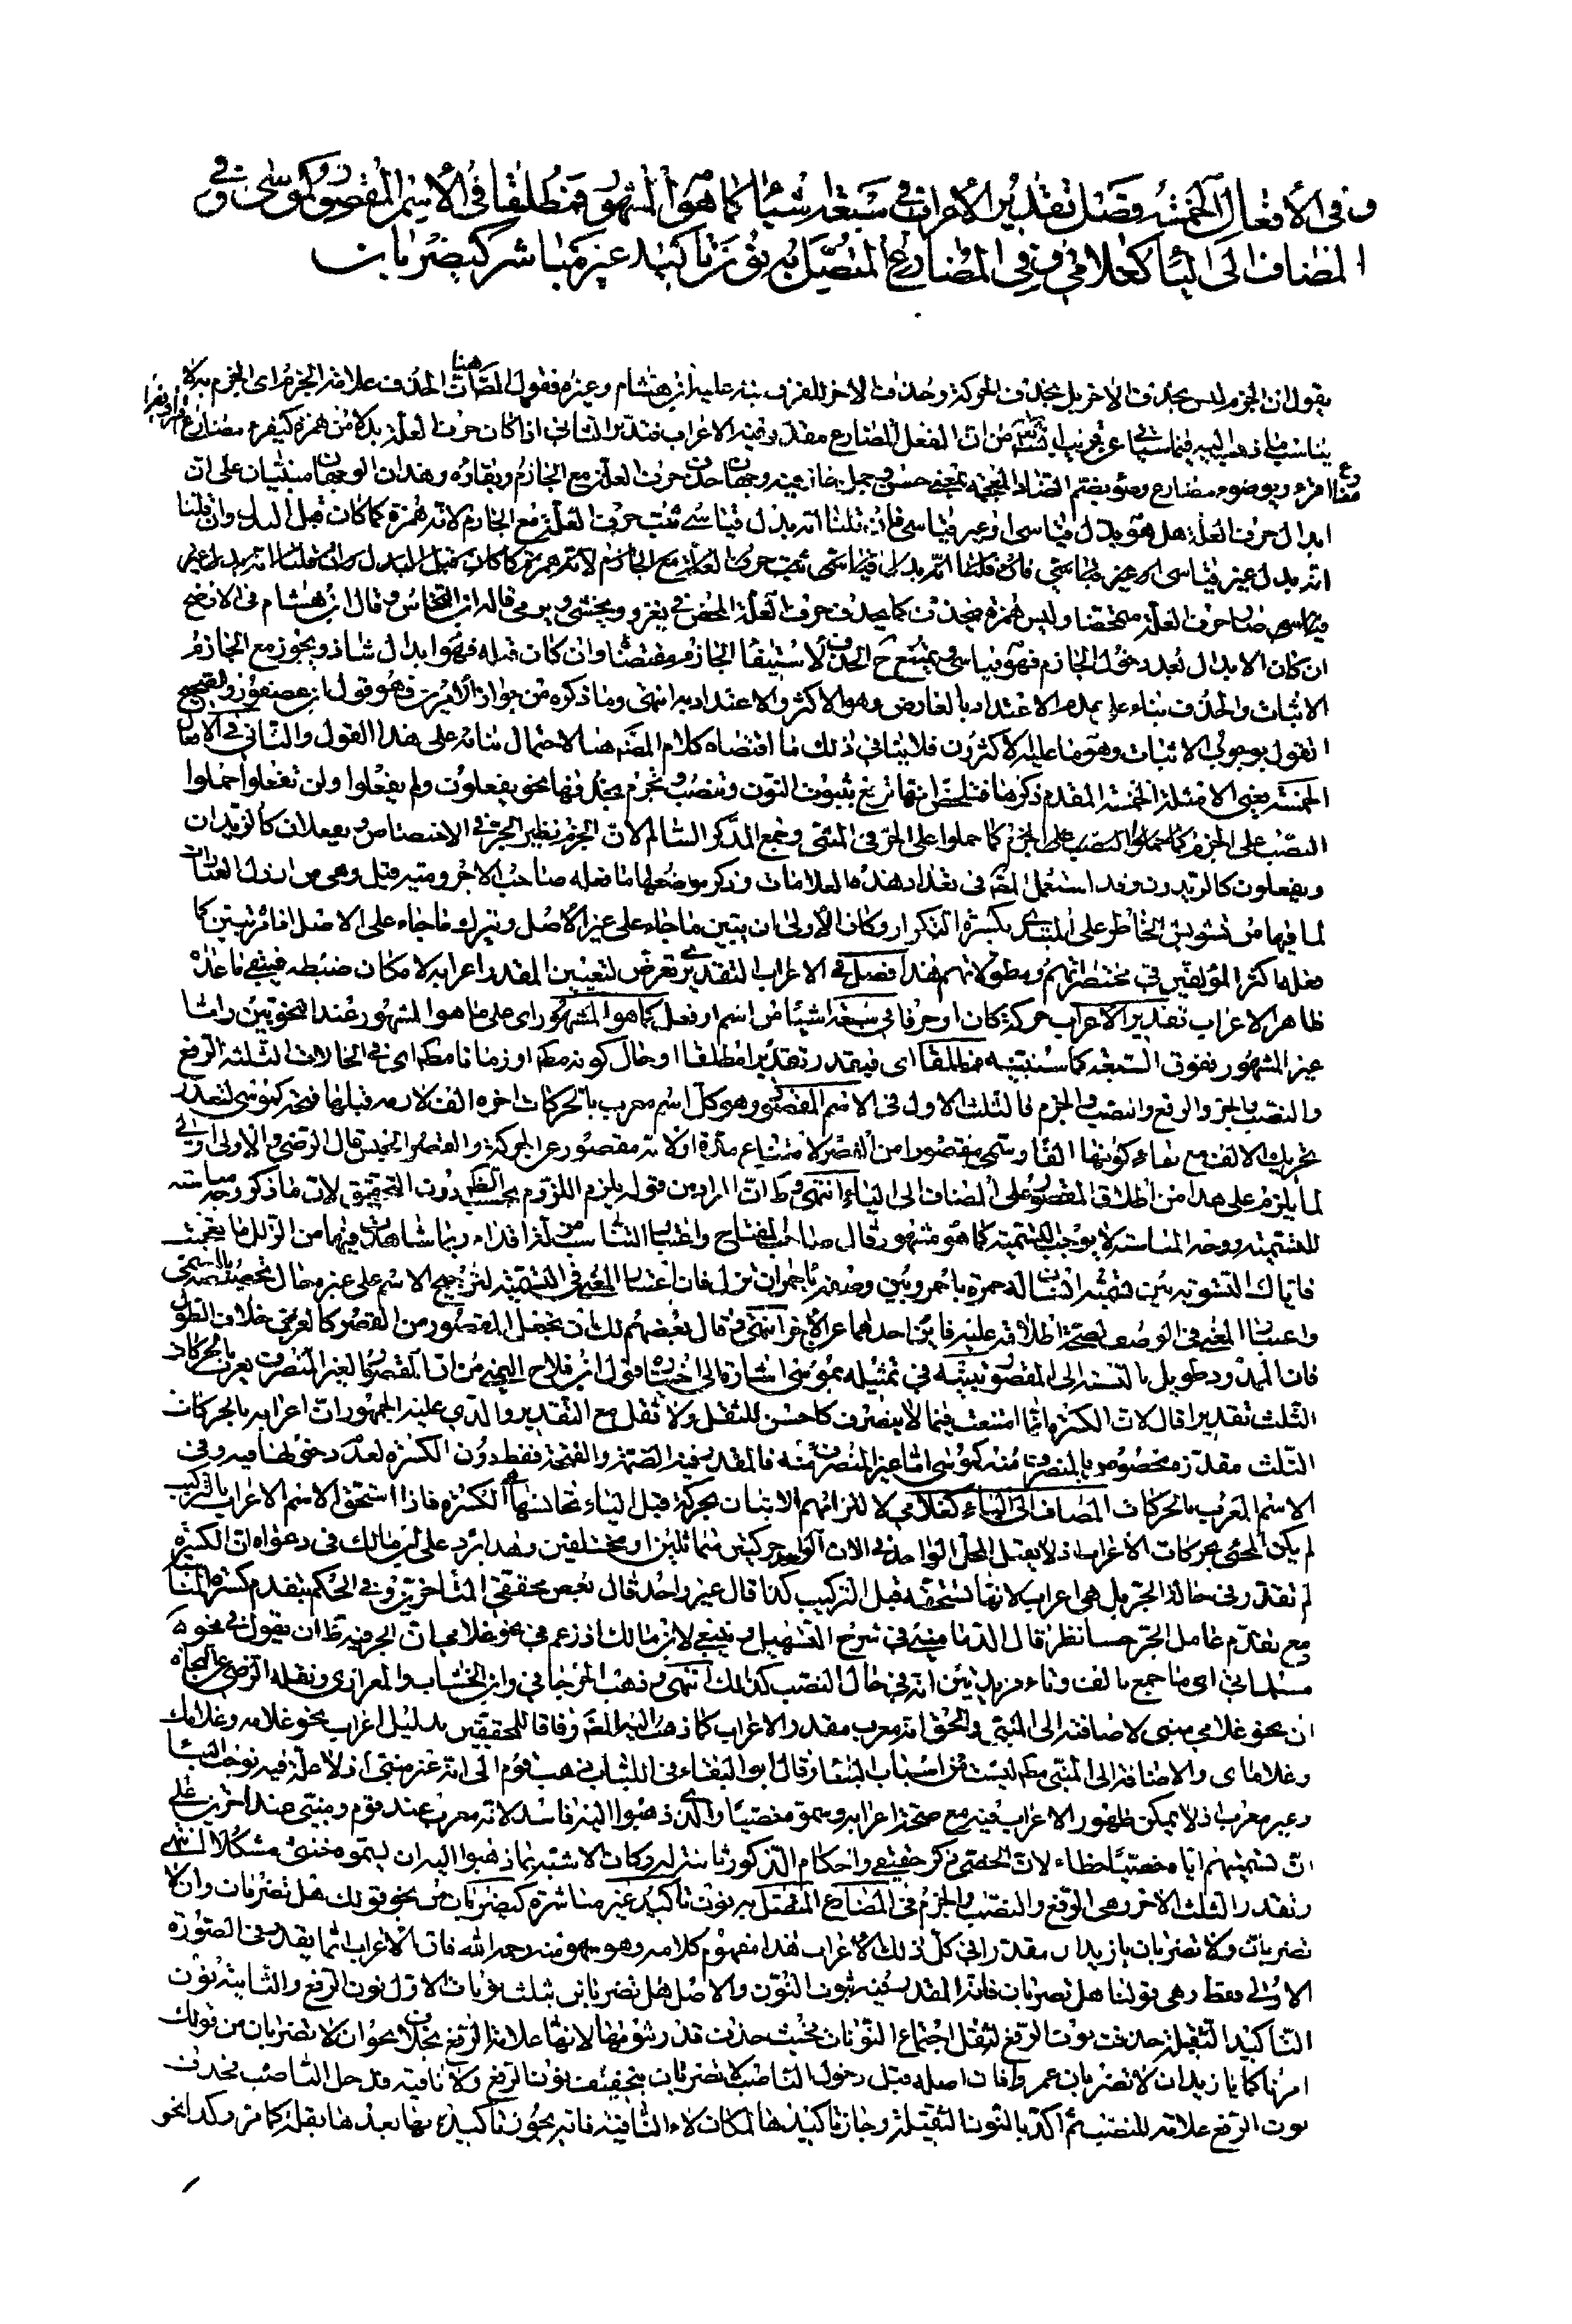 وفى الأفعال الخمسة فصل تقدير الأعراب فى سبعة اشياء كما هو المشهور فمطلقا فى الأسم المقصور كموسى وفى
المضاف الى الياء كغلامى وفى المضارع المتصل به نون تاكيد غير مباشر كيضربان
يقول ان الجزم ليس بحذف الاخر بل بحذف الحركة وحذف الاخر للفرق نبه عليه ابن هشام وغيره فقول المص هنا ان الحذف علامة الجزم اى الجزم به لا
يناسب ما ذهب اليه فيما سياتى عن قريب من ان الفعل المضارع مقدر فيه الاعراب الثانى اذا كان حرف العلة بدلا من همزة كيقرء مضارع
قرء ويوضو مضارع وضو بضم الضاد المعجمة بمعنى حسن وجمل جاز فيه وجهان حذف حرف العلة مع الجازم وبقاؤه وهذان الوجهان مبنيان على ان
ابدال حرف العلة هل هو بدل قياسى او غير قياسى فان قلنا انه بدل قياسى ثبت حرف العلة مع الجازم لانه همزة كما كان قبل البدل وان قلنا
انه بدل غير قياسى فان قلنا انه بدل قياسى ثبت حرف العلة مع الجازم لانه همزة كما كان قبل البدل وان قلنا انه بدل غير
قياسى صار حرف العلة متمحضا وليس همزة فيحذف كما يحذف حرف العلة المحض فى يغزو ويخشى ويرمى قاله ابن النحاس وقال ابن هشام فى الاوضح
ان كان الابدال بعد دخول الجازم فهو قياسى ويمتنع ح الحذف لاستيفاء الجازم مقتضاه وان كان قبله فهو ابدال شاذ ويجوز مع الجازم
الاثبات والحذف بناء على عدم الاعتداد بالعارض وهو الاكثر والاعتداد به انتهى وما ذكره من جواز الامرين هو قول ابن عصفور والصحيح
القول بوجوب الاثبات وهو ما عليه الاكثرون فلا ينافى ذلك ما اقتضاه كلام المص هنا لاحتمال بنائه على هذا القول والثانى فى الافعال
الخمسة يعنى الامثلة الخمسة المقدم ذكرها فتلخص انها ترفع بثبوت النون وتنصب وتجزم بحذفها نحو يفعلون ولم يفعلوا ولن تفعلوا حملوا
النصب على الجزم كما حملوا على الجر فى المثنى وجمع المذكر السالم لان الجزم نظير الجر فى الاختصاص ويفعلان كالزيدان
ويفعلون كالزيدون وقد استعمل المص فى تعداد هذه العلامات وذكر مواضعها ما فعله صاحب الاجرومية قيل وهى من ارذل العبارات
لما فيها من تشويش الخاطر على المبتدى بكثرة التكرار وكان الأولى ان يتبين ما جاء على غير الأصل ويترك ما جاء على الاصل كما
فعله اكثر المؤلفين فى مختصراتهم ومطولاتهم هذا فصل فى الاعراب التقديرى تعرض لتعيين المقدر اعرابه لامكان ضبطه فيبقى ما عداه
ظاهر الاعراب تقدير الأعراب حركة كان او حرفا فى سبعة اشياء من اسم او فعل كما هو المشهور اى على ما هو المشهور عند النحويين واما
غير المشهور ففوق السبعة كما سننبه فمطلقا اى فيقدر تقديرا مطلقا او حال كونه مطلقا او زمانا مطلقا اى فى الحالات الثلاثة الرفع
والنصب والجر والرفع والنصب والجزم فالثلث الاول فى الاسم المقصور وهو كل اسم معرب بالحركات اخره الف لازمة قبلها فتحة كموسى لتعذر
تحريك الالف مع بقاء كونها الفا وسمى مقصورا من القصر لامتناع مده او لانه مقصور عن الحركة والقصر الحبس قال الرضى والاولى اولى
لما يلزم على هذا من اطلاق المقصور على المضاف الى الياء انتهى وظ ان المراد من قوله يلزم اللزوم بحسب الظ دون التحقيق لان ما ذكر وجه مناسبة
للتسمية ووجه المناسبة لا يوجب التسمية كما هو مشهور قال صاحب المفتاح واعتبار التناسب من
فاياك التسوية بين تسمية انسان له حمرة باحمر وبين وصفه باحمر ان تزل فان اعتبار المعنى فى التسمية لترجيح الاسم على غيره حال تخصيصه بالمسمى
واعتبار المعنى فى الوصف لصحة اطلاقه عليه فاين احدهما عن الأخر انتهى وقال بعضهم لك ان تجعل المقصور من القصر كالعرض خلاف الطول
فان الممدود طويل بالنسبة الى المقصور تنبيه فى تمثيله بموسى اشارة الى اختيار قول ابن فلاح اليمنى من ان المقصور الغير المنصرف يعرب بالحركات
الثلث تقديرا قال لان الكسرة انما امتنعت فيما لا ينصرف كاحسن للثقل ولا ثقل مع التقدير والذى عليه الجمهور ان اعرابه بالحركات
الثلث مقدرة مخصوص بالمنصرف منه كموسى اما غير المنصرف منه فالمقدر فيه الضمة والفتحة فقط دون الكسرة لعدم دخولها فيه وفى
الاسم المعرب بالحركات المضاف الى الياء كغلامى لالتزامهم الاتيان بحركة قبل الياء تجانسها وهى الكسرة فاذا استحق الاسم الاعراب بالتركيب
لم يكن المجئ بحركات الاعراب اذ لا يقبل المحل الواحد فى الان الواحد حركتين متماثلين او مختلفين وهذا يرد على ابن مالك فى دعواه ان الكسرة
لم تقدر فى حالة الجر بل هى اعراب لانها تستحقه قبل التركيب كذا قال غير واحد قال بعض محققى المتأخرين وفى الحكم بتقدم كسرة المناسبة
مع تقدم عامل الجر حسا نظر قال الدمامينى فى شرح التسهيل وينبغى لابن مالك اذ زعم فى نحو غلامى ان يقول فى نحو
مسلماتى اى ما جمع بالف وتاء مزيدتين انه فى حال النصب كذلك انتهى وذهب الجرجانى وابن الخشاب والمطرزى ونقله الرضى عن النحاة
ان نحو غلامى مبنى لاضافته الى المبنى والحق انه معرب مقدر الاعراب كما ذهب اليه المص وفاقا للمحققين بدليل اعراب نحو غلامه وغلامك
وغلاماى والاضافة الى المبنى مطلقا ليست من اسباب البناء وقال ابو البقاء فى اللباب ذهب قوم الى انه غير مبنى اذ لا علة فيه توجب البناء
وغير معرب اذ لا يمكن ظهور الاعراب فيه مع صحة اعرابه وسموه خصيا والذى ذهبوا اليه فاسد لانه معرب عند قوم ومبنى عند اخرين على
ان تسميتهم اياه خصيا خطاء لان الخصى ذكر حقيقى واحكام الذكور ثابتة له وكان الاشبه بما ذهبوا اليه ان يسموه خنثى مشكلا انتهى
وتقدر الثلث الاخر وهى الرفع والنصب والجزم فى المضارع المتصل به نون تاكيد غير مباشرة كيضربان من نحو قولك هل تضربان وان لا
تضربان ولا تضربان يا زيدان مقدرا فى كل ذلك الأعراب هذا مفهوم كلامه وهو سهو منه رحمه الله فان الاعراب انما يقدر فى الصورة
الاولى فقط وهى قولنا هل تضربان فانه المقدر فيه ثبوت النون والاصل هل تضرباننّ بثلث نونات الاول نون الرفع والثانية نون
التاكيد الثقيلة حذفت نون الرفع لثقل اجتماع النونات بحيث حذفت قدر ثبوتها لانها علامة الرفع بخلاف نحو ان لا تضربان من قولك
امرتكما يا زيدان لا تضربان عمروا فان اصله قبل دخول الناصب لا تضربان بتخفيف نون الرفع ولا نافية فدخل الناصب بحذف
نون الرفع علامة للنصب ثم اكد بالنون الثقيلة وجاز تاكيدها لمكان لاء النافية فانه يجوز تاكيد ما بعدها بقلة كما مر وكذا نحو